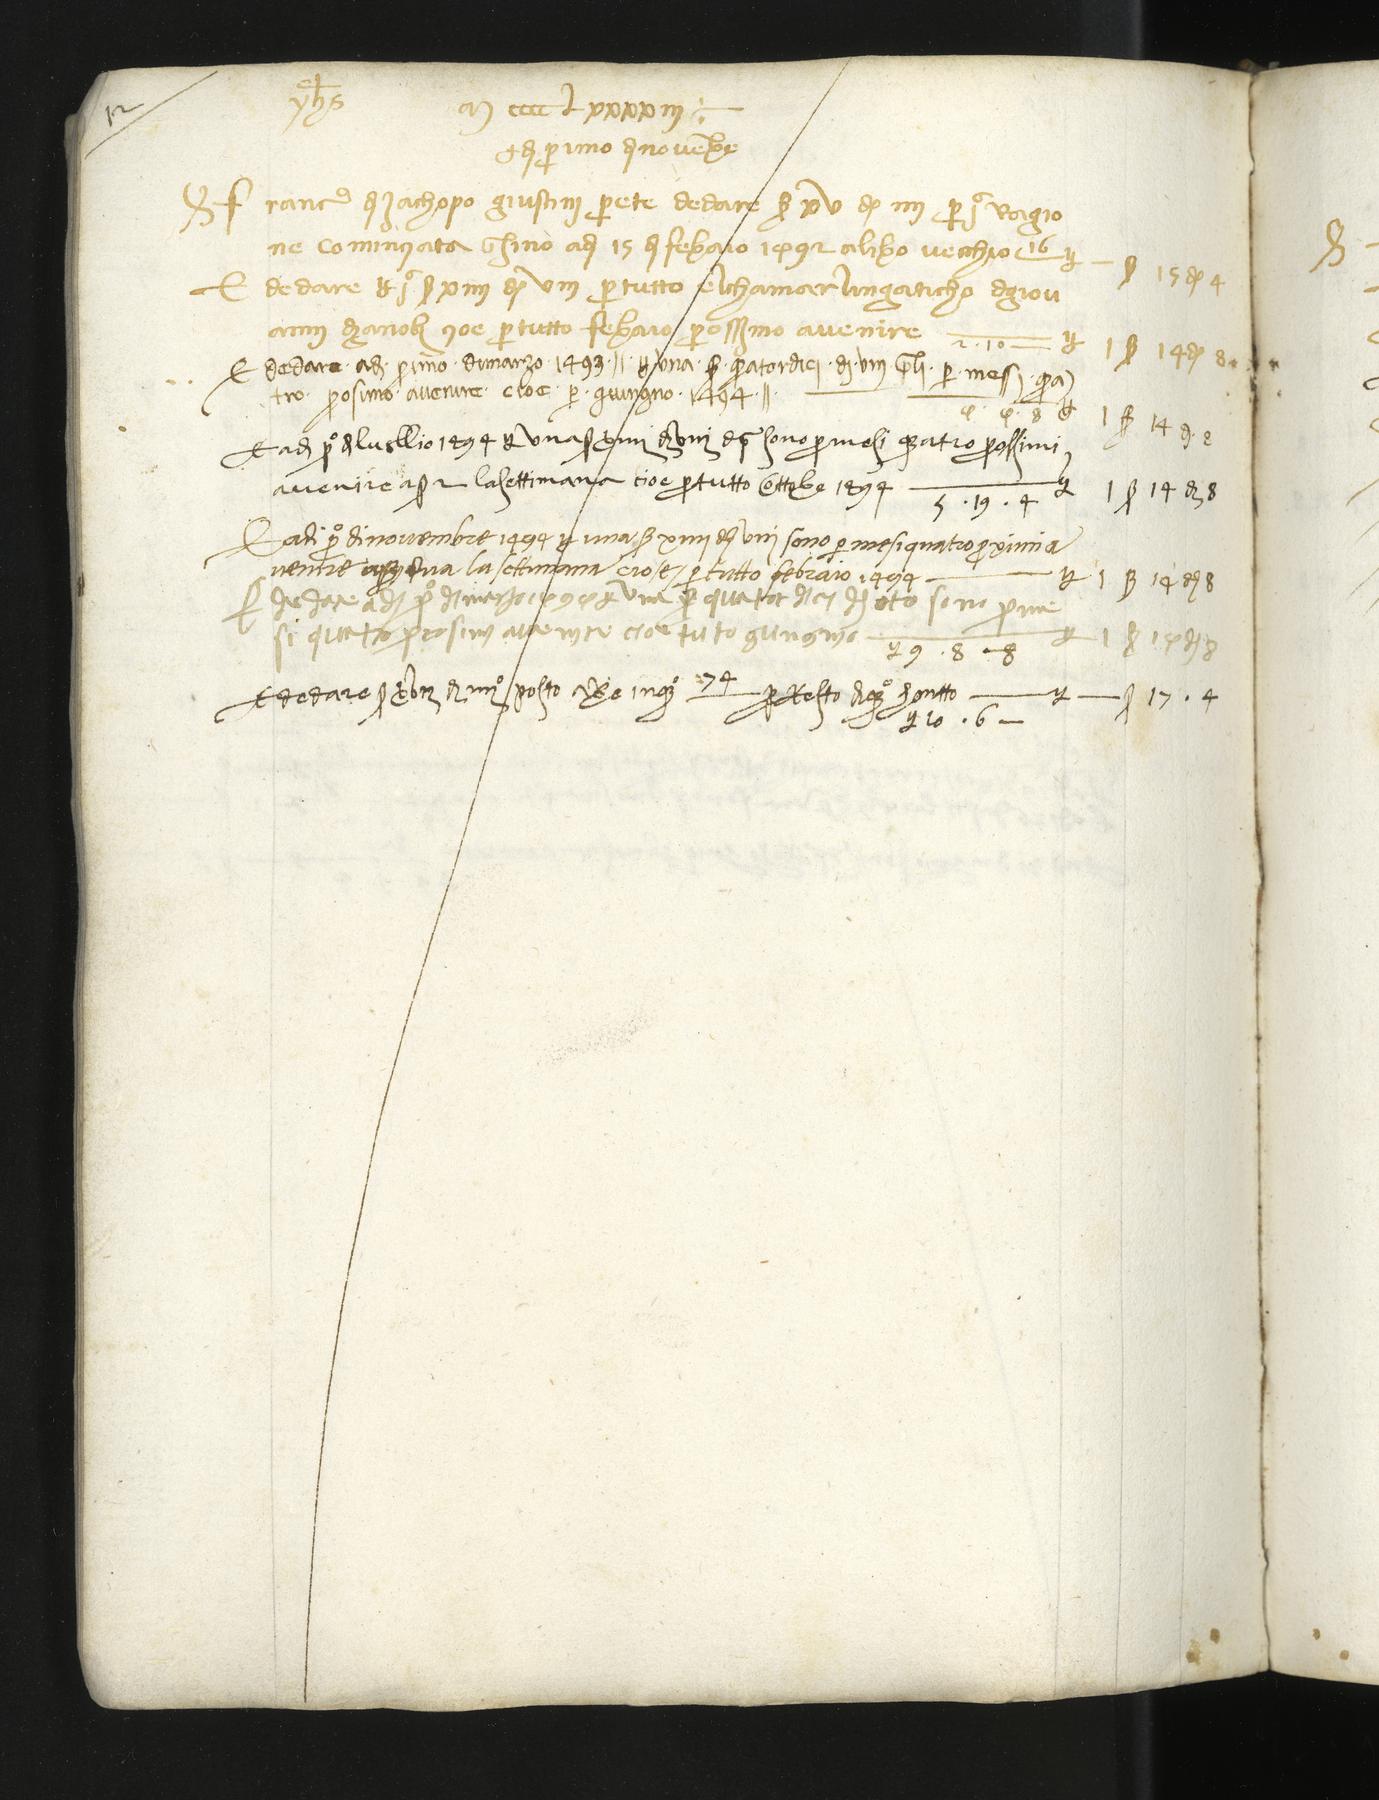 12
yhs M cccc Lxxxxiii
Adi primo di novenbre
francº di Jachopo giustini prete de dare ß xv d iiii per j ragio
ne cominciata ghino adi 15 di febraio 1492 a libro vecchio 16 £ — ß 15 d 4
E de dare £ j ß xiiii d viii per tutto el chamarlingaticho di giov
anni di zanobi per tutto febraio prossimo avenire 2.10 £ 1 ß 14 d 8
E de dare adi primo di marzo 1493 // £ una ß quatordici d viii per messi qua
tro prosimo avenire cioe per giungno 1494 // 4.4.8 £ 1 ß 14 d 8
E adi pº di lucllio 1494 £ una ß xiiii d viii sono per mesi quatro prossimi
avenire a ß 2 la settimana cioe per tutto Ottobre 1494 5.19.4 £ 1 ß 14 d 8
E adi pº di novembre 1494 £ una ß xiiii d viii sono per mesi quatro proximi a
venire a ß dua la settimana cioe per tutto febraio 1494 £ 1 ß 14 d 8
E de dare adi pº di marzo 1494 £ una ß quatordici d oto sono per me
si quatro prosimi avenire cioe tuto gungnio £ 9.8.8 £ 1 ß 14 d 8
E de dare ß xvii d iiiiº posto avere in qº 74 per Resto di qº chontto £ — ß 17.4
£ 10.6 —